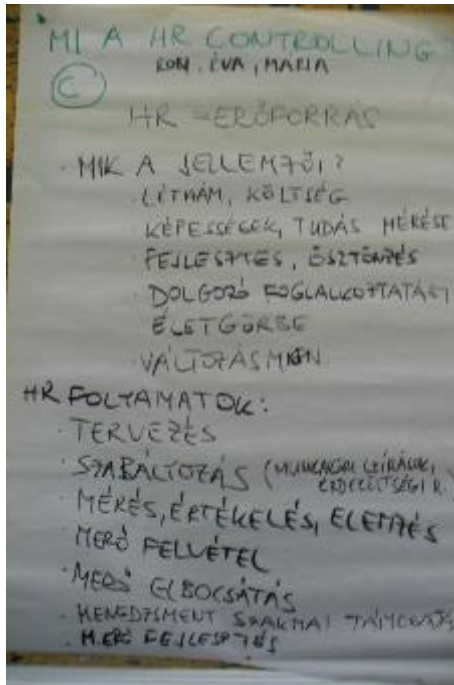 MI A HR CONTROLLING?
ROM. ÉVA, MÁRIA
C
HR = ERŐFORRÁS
· MIK A JELLEMZŐI?
· LÉTSZÁM, KÖLTSÉG
· KÉPESSÉGEK, TUDÁS MÉRÉSE
· FEJLESZTÉS, ÖSZTÖNZÉS
· DOLGOZÓ FOGLALKOZTATÁSI
ÉLETGÖRBE
· VÁLTOZÁSMEN.
HR FOLYAMATOK:
· TERVEZÉS
· SZABÁLYOZÁS (MUNKAKÖRI LEÍRÁSOK,
ÉRDEKELTSÉGI R.)
· MÉRÉS, ÉRTÉKELÉS, ELEMZÉS
· M.ERŐ FELVÉTEL
· M.ERŐ ELBOCSÁTÁS
· MENEDZSMENT SZAKMAI TÁMOGATÁS
· M.ERŐ FEJLESZTÉS